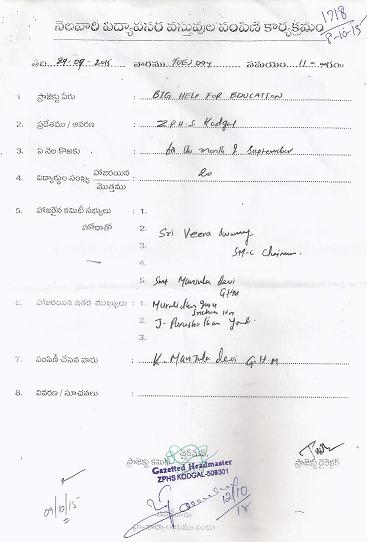 1718
8-10-15
నెలవారి విద్యావసర వస్తువుల పంపిణి కార్యక్రమం
తేది 29-09-2015 వారము TUESDAY సమయం 11-
1. ప్రాజెక్టు పేరు : BIG HELP FOR EDUCATION
2. ప్రదేశము / ఆవరణ : Z.P.H.S Kodgal
3. ఏ నెల కొరకు : for the month of September
4. విద్యార్థుల సంఖ్య హాజరయిన మొత్తము : 20
5. హాజరైన కమిటీ సభ్యులు : 1.
హోదాతో 2. Sri Veera Swamy
3. SM-C Chairman.
4.
5. Smt Manjula devi
GHM
6. హాజరయిన ఇతర ముఖ్యులు : 1. Muralidhar
2. J-
3.
7. పంపిణీ చేసిన వారు : K. Manjula devi G.H.M
8. వివరణ / సూచనలు :
ప్రాజెక్టు కమిటీ ఛైర్మెన్
ప్రాజెక్టు డైరెక్టర్
Gazetted Headmaster
ZPHS KODGAL-509301
12/10
15
09/10/15